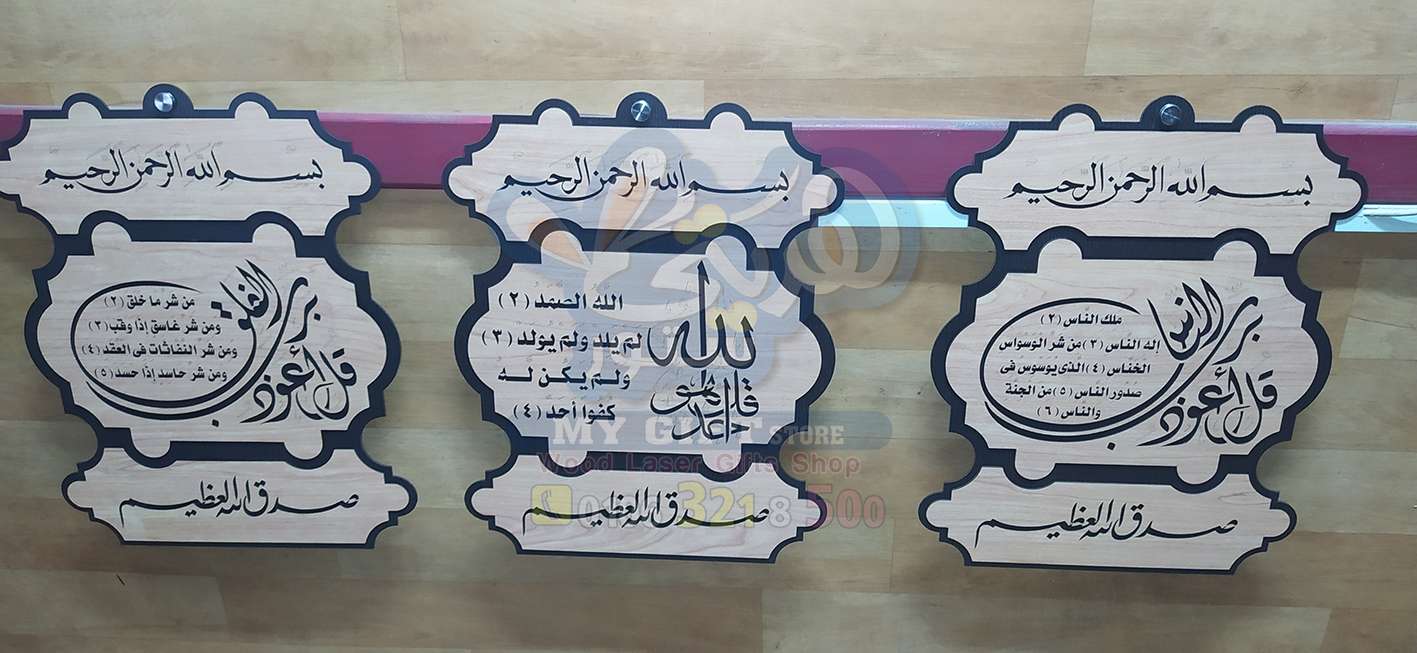 بسم الله الرحمن الرحيم
قل أعوذ برب الناس
ملك الناس (٢)
إله الناس (٣) من شر الوسواس
الخناس (٤) الذى يوسوس فى
صدور الناس (٥) من الجنة
والناس (٦)
صدق الله العظيم
بسم الله الرحمن الرحيم
قل هو الله أحد
الله الصمد (٢)
لم يلد ولم يولد (٣)
ولم يكن له
كفوا أحد (٤)
صدق الله العظيم
بسم الله الرحمن الرحيم
قل أعوذ برب الفلق
من شر ما خلق (٢)
ومن شر غاسق إذا وقب (٣)
ومن شر النفاثات فى العقد (٤)
ومن شر حاسد إذا حسد (٥)
صدق الله العظيم
MY GIFT STORE
Wood Laser Gifts Shop